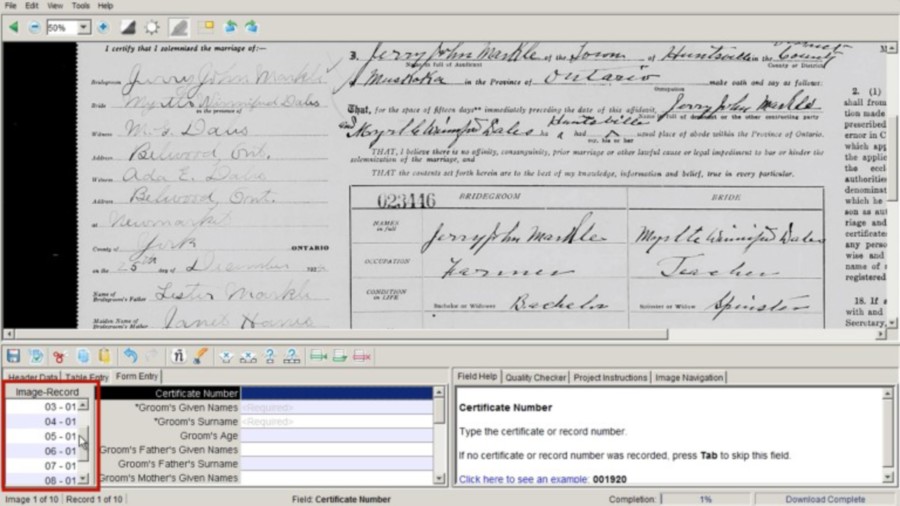 File Edit View Tools Help
50%
I certify that I solemnized the marriage of:—
Bridegroom Jerry John Markle
Bride Myrtle Winnifred Dales
in the province of
Witness M. G. Dales
Address Belwood, Ont.
Witness Ada E. Dales
Address Belwood, Ont.
at Newmarket
County of York ONTARIO
on the 25th day of December
Name of
Bridegroom's Father Lester Markle
Maiden Name of
Bridegroom's Mother Janet Harris
3. Jerry John Markle of the Town of Huntsville in the County
County or District
Muskoka in the Province of Ontario make oath and say as follows:
Occupation
That, for the space of fifteen days immediately preceding the date of this affidavit, Jerry John Markle
or the other contracting party
and Myrtle Winnifred Dales Huntsville had usual place of abode within the Province of Ontario.
THAT, I believe there is no affinity, consanguinity, prior marriage or other lawful cause or legal impediment to bar or hinder the
solemnization of the marriage, and
THAT the contents set forth herein are to the best of my knowledge, information and belief, true in every particular.
023446 BRIDEGROOM BRIDE
NAMES
in full Jerry John Markle Myrtle Winnifred Dales
OCCUPATION Farmer Teacher
CONDITION
in LIFE Bachelor or Widower Bachelor Spinster or Widow Spinster
2. (1)
shall from
tion made
prescribed
ernor in C
which app
the applic
the eccl
authorities
denominat
which he
son as aut
riage and
certificate
any perso
wise and
name of
registered
18. If a
with and
Secretary,
Header Data Table Entry Form Entry
Image-Record
03 - 01
04 - 01
05 - 01
06 - 01
07 - 01
08 - 01
Certificate Number
*Groom's Given Names <Required>
*Groom's Surname <Required>
Groom's Age
Groom's Father's Given Names
Groom's Father's Surname
Groom's Mother's Given Names
Field Help Quality Checker Project Instructions Image Navigation
Certificate Number
Type the certificate or record number.
If no certificate or record number was recorded, press Tab to skip this field.
Click here to see an example: 001920
Image 1 of 10 Record 1 of 10 Field: Certificate Number Completion: 1% Download Complete